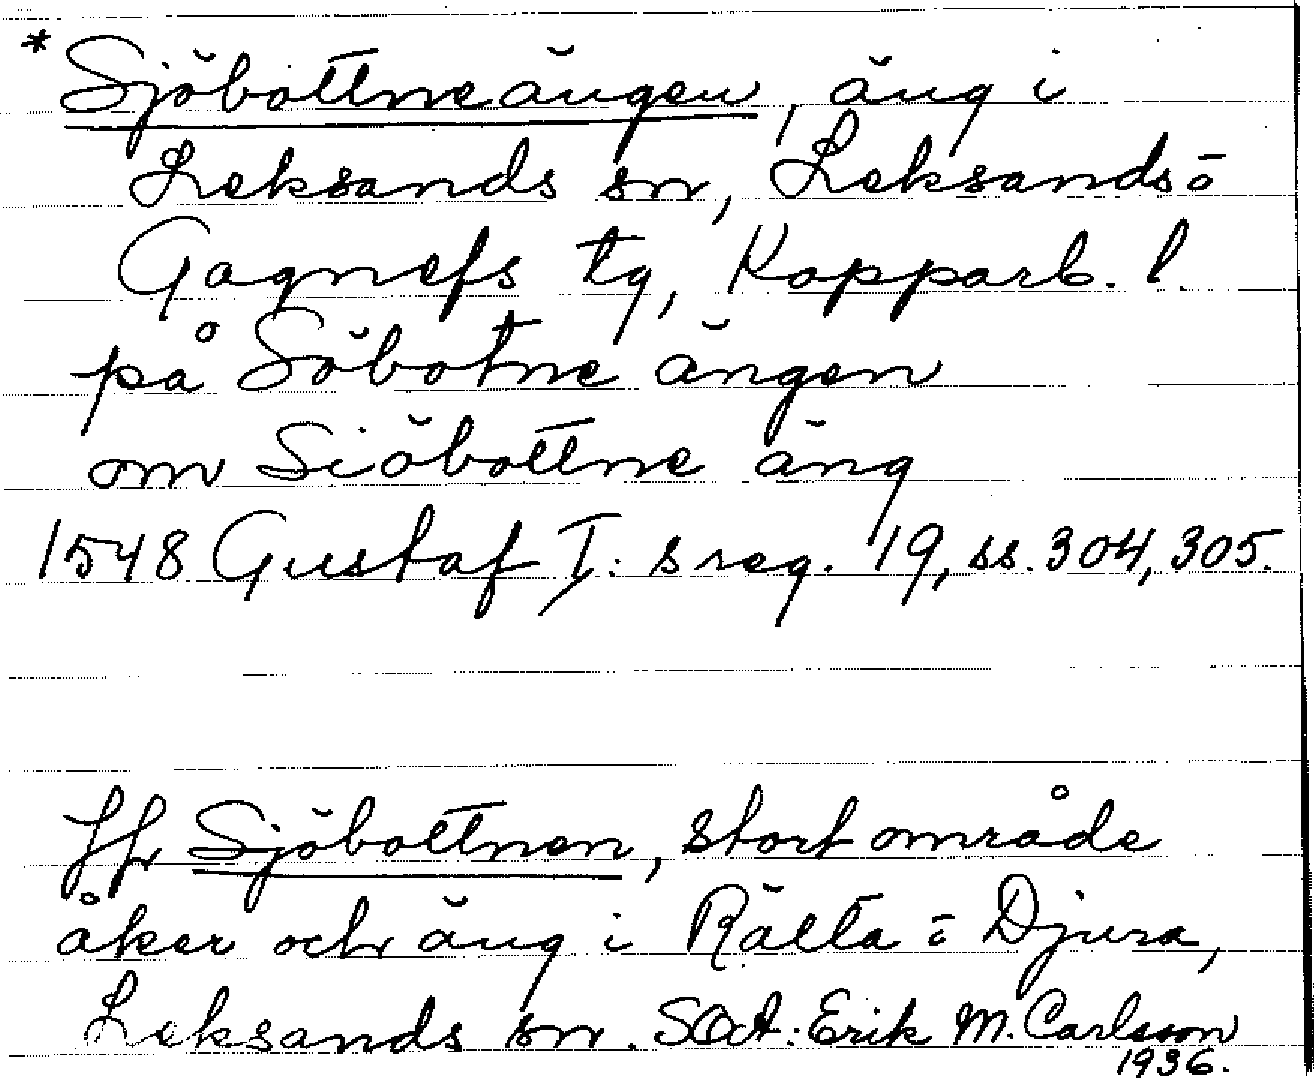 * Sjöbottneängen, äng i
Leksands sn, Leksands o
Gagnefs tg, Kopparb. l.
på Söbotne ängen
om Siöbottne äng
1548 Gustaf I: s reg. 19, ss. 304, 305.
Jfr Sjöbottnen, stort område
åker och äng i Rälta o Djura,
Leksands sn. SOA: Erik M. Carlsson
1936.